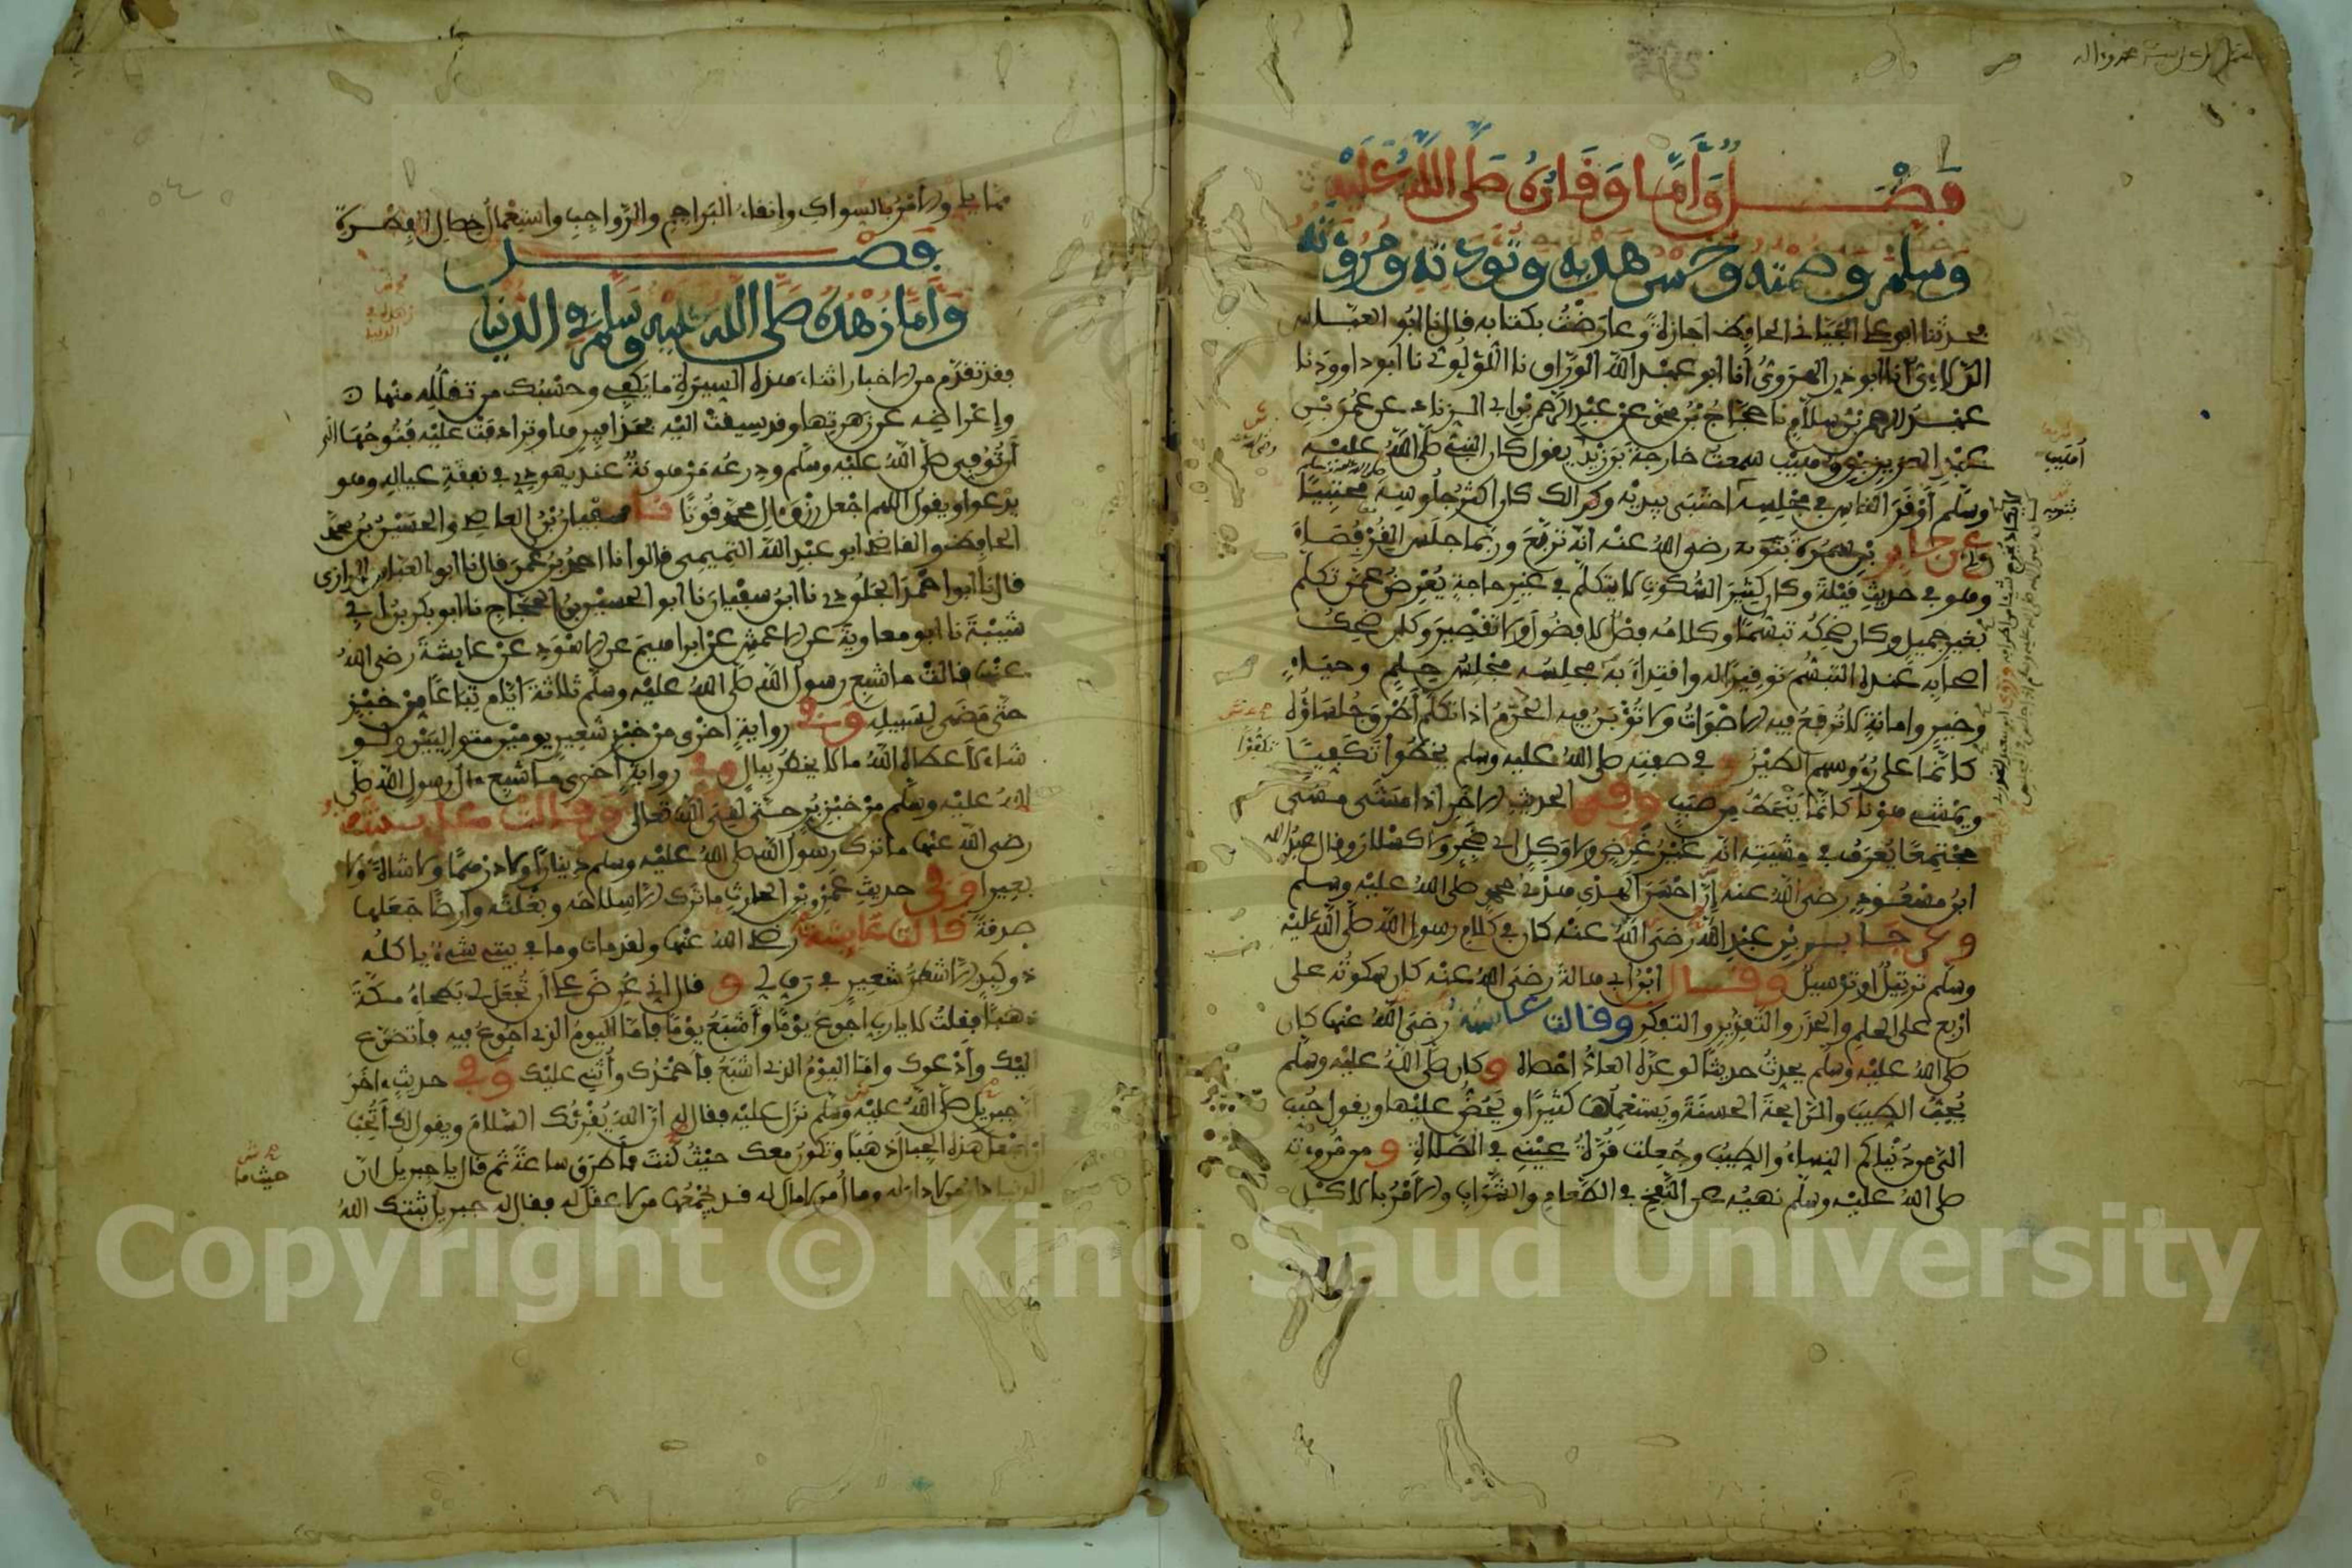 فصل وأما وقاره صلى الله عليه
وسلم وصمته وحسن هديه وتؤدته ومروءته
فحدثنا ابو علي الجياني الحافظ اجازة وعارضت بكتابه قال نا ابو العباس
الدلائي انا ابو ذر الهروي انا ابو عبد الله الوراق نا اللؤلؤي نا ابو داوود نا
عبد الرحمن بن سلام نا حجاج بن محمد عن عبد الرحمن بن ابي الزناد عن عمر بن
عبد العزيز بن وهيب سمعت خارجة بن زيد يقول كان النبي صلى الله عليه
وسلم أوقر الناس في مجلسه احتبى بيديه وكذلك كان اكثر جلوسه محتبيا
وعن جابر بن سمرة رضي الله عنه انه تربع وربما جلس القرفصاء
وهو في حديث قيلة وكان كثير السكوت لا يتكلم في غير حاجة يعرض عمن تكلم
بغير جميل وكان ضحكه تبسما وكلامه فصلا لا فضول ولا تقصير وكان ضحك
اصحابه عنده التبسم توقيرا له واقتداء به مجلسه مجلس حلم وحياء
وخير وامانة لا ترفع فيه الاصوات ولا تؤبن فيه الحرم اذا تكلم أطرق جلساؤه
كانما على رؤوسهم الطير وفي صفته صلى الله عليه وسلم يخطو تكفيا
ويمشي هونا كانما ينحط من صبب وفي الحديث الاخر اذا مشى مشى
مجتمعا يعرف في مشيته انه غير غرض ولا وكل اي ضجر ولا كسلان وقال عبد الله
ابن مسعود رضي الله عنه إن احسن الهدي هدي محمد صلى الله عليه وسلم
وعن جابر بن عبد الله رضي الله عنه كان في كلام رسول الله صلى الله عليه
وسلم ترتيل او ترسيل وقال ابن ابي هالة رضي الله عنه كان سكوته على
اربع على الحلم والحذر والتقدير والتفكر وقالت عائشة رضي الله عنها كان
صلى الله عليه وسلم يحدث حديثا لو عده العاد احصاه وكان صلى الله عليه وسلم
يحب الطيب والرايحة الحسنة ويستعملها كثيرا ويحض عليها ويقول حبب
الي من دنياكم النساء والطيب وجعلت قرة عيني في الصلاة ومن مروءته
صلى الله عليه وسلم نهيه عن النفخ في الطعام والشراب والامر بالاكل
مما يلي والامر بالسواك وانقاء البراجم والرواجب واستعمال خصال الفطرة
فصل
وأما زهده صلى الله عليه وسلم في الدنيا
فقد تقدم من الاخبار اثناء هذه السيرة ما يكفي وحسبك من تقلله منها
وإعراضه عن زهرتها وقد سيقت اليه بحذافيرها وترادفت عليه فتوحها الى
أن توفي صلى الله عليه وسلم ودرعه مرهونة عند يهودي في نفقة عياله وهو
يدعو ويقول اللهم اجعل رزق ال محمد قوتا نا سفيان بن العاصي والحسين بن محمد
الحافظ والقاضي ابو عبد الله التميمي قالوا نا احمد بن عمر قال نا ابو العباس الرازي
قال نا ابو احمد الجلودي نا ابن سفيان نا ابو الحسين بن الحجاج نا ابو بكر بن ابي
شيبة نا ابو معاوية عن الاعمش عن ابراهيم عن الاسود عن عايشة رضي الله
عنها قالت ما شبع رسول الله صلى الله عليه وسلم ثلاثة ايام تباعا من خبز
حتى مضى لسبيله وفي رواية اخرى من خبز شعير يومين متواليين ولو
شاء لاعطاه الله ما لا يخطر ببال وفي رواية اخرى ما شبع ءال رسول الله صلى
الله عليه وسلم من خبز بر حتى لقي الله تعالى وقالت عايشة
رضي الله عنها ما ترك رسول الله صلى الله عليه وسلم دينارا ولا درهما ولا شاة ولا
بعيرا وفي حديث عمرو بن الحارث ما ترك الا سلاحه وبغلته وارضا جعلها
صدقة قالت عايشة رضي الله عنها ولقد مات وما في بيتي شيء ياكله
ذو كبد الا شطر شعير في رف لي وقال اني عرض علي أن تجعل لي بطحاء مكة
ذهبا فقلت لا يا رب اجوع يوما وأشبع يوما فاما اليوم الذي اجوع فيه فاتضرع
اليك وأدعوك واما اليوم الذي اشبع فاحمدك وأثني عليك وفي حديث ءاخر
ان جبريل صلى الله عليه وسلم نزل عليه فقال له ان الله يقرئك السلام ويقول لك أتحب
ان اجعل هذه الجبال ذهبا وتكون معك حيث كنت فاطرق ساعة ثم قال يا جبريل ان
الدنيا دار من لا دار له ومال من لا مال له قد يجمعها من لا عقل له فقال له جبريل ثبتك الله
حيث ما
Copyright © King Saud University